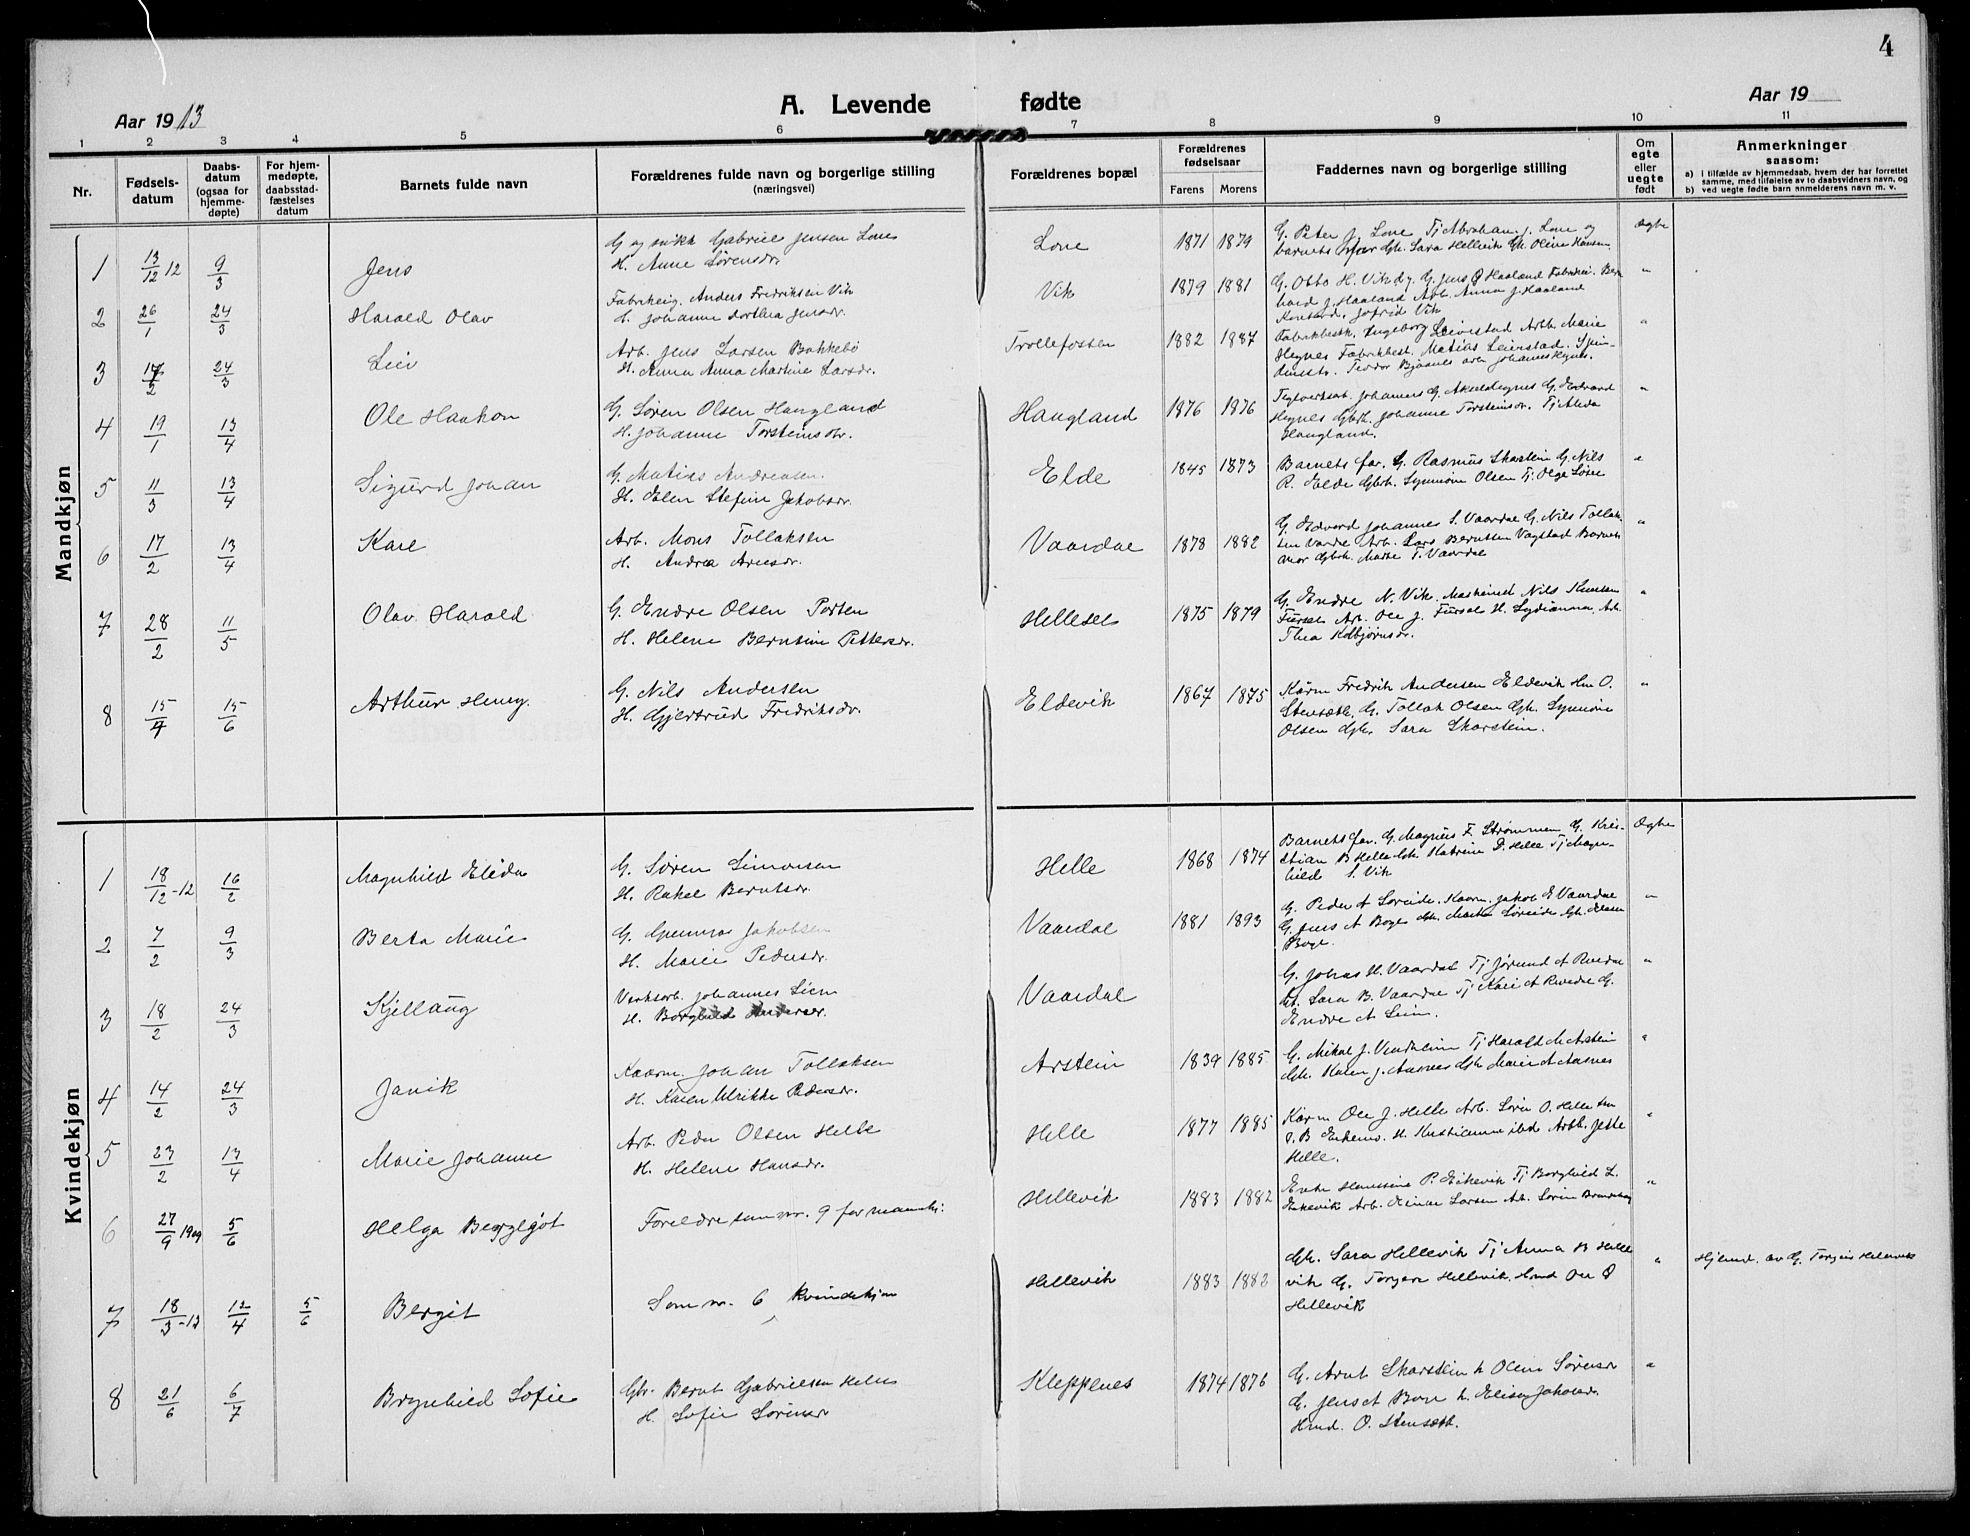 4
Aar 1913
A. Levende fødte
Aar 19
1 2 3 4 5 6 7 8 9 10 11
Nr.
Fødsels-
datum
Daabs-
datum
(ogsaa for
hjemme-
døpte)
For hjem-
medøpte,
daabsstad-
fæstelses
datum
Barnets fulde navn
Forældrenes fulde navn og borgerlige stilling
(næringsvei)
Forældrenes bopæl
Forældrenes
fødselsaar
Farens Morens
Faddernes navn og borgerlige stilling
Om
egte
eller
uegte
født
Anmerkninger
saasom:
a) i tilfælde av hjemmedaab, hvem der har forrettet
samme, med tilføielse av to daabsvidners navn, og
b) ved uegte fødte barn anmelderens navn m. v.
Mandkjøn
1 13/12 12 9/3 Jens
G og snikk Gabriel Jensen Lone
H. Anne Sørensdr.
Lone 1871 1879
G. Peter J. Lone Tj Abraham J. Lone og
barnets mor Gk. Sara Hellevik Gk. Oline Hansen
Ægte
2 26/1 24/3 Harald Olav
Fabrikeig. Anders Fredriksen Vik
H. Johanne Dorthea Jensdr.
Vik 1879 1881
G. Otto H. Vik G. Jens O Haaland Fabrikei. Bern
hard J. Haaland Arb. Anna J. Haaland
Jofrid Vik
"
3 17/2 24/3 Leiv
Arb. Jens Larsen Bakkebø
H. Anna Martine Larsdr.
Trollefossen 1882 1887
Fabrikbest. Ingeborg Leirstad Arb. Marie
Hegnes Fabrikbest. Matias Leirstad.
Teodor Bjåsnes arb Johannes Hegnes.
"
4 19/1 13/4 Ole Haakon
G. Søren Olsen Haugland
H. Johanne Torsteinsdr.
Haugland 1876 1876
Johannes G. G. Edvard
Hegnes Gbrk. Johanne Torsteinsdr. Tj Alida
Haugland.
"
5 11/3 13/4 Sigurd Johan
G. Matias Andreasen.
H. Elen Stefine Jakobsdr.
Elde 1845 1873
Barnets far. G. Rasmus Skorstein G. Nils
R. Elde Gbrk. Synnøve Olsen Tj. Olge Løne
"
6 17/2 13/4 Kare
Arb. Mons Tollaksen
H. Andrea Arnesdr.
Vaardal 1878 1882
G. Edvard Johannes S. Vaardal G. Nils Tollak-
sen Varde Arb. Lars Berntsen Vagstad Barnets
mor Gbrk. Marte T. Vaardal
"
7 28/2 11/5 Olav Harald
G. Endre Olsen Porten
H. Helene Berntine Pettersdr.
Hellesel 1875 1879
G. Endre N. Vik. Maskinist Nils Knutsen
Fürset Arb. Ole J. Fürset H. Lydianna, Arb.
Thea Kolbjørnsdr.
"
8 15/4 15/6 Arthur Henry.
G. Nils Andersen
H. Gjertrud Fredriksdr.
Eldevik 1867 1875
Kårm Fredrik Andersen Eldevik Hm O.
Stensæth. G. Tollak Olsen Gk. Synnøve
Olsen Gk. Sara Skorstein.
"
Kvindekjøn
1 18/12-12 16/2 Magnhild Elida
G. Søren Simonsen
H. Rakel Berntsdr.
Helle 1868 1874
Barnets far. G. Magnus F. Strømmen. G. Kris-
tian B Helle Gk. Katrine D. Helle Tj Magn-
hild S. Vik
Ægte
2 7/2 9/3 Berta Marie
G. Gunnar Jakobsen
H. Marie Pedersdr.
Vaardal 1881 1893
G. Peder A Løseide. Kaarm. Jakob E Vaardal
G. Jens A Boge Gk. Marta Løseide Gk.
Boge.
"
3 18/2 24/3 Kjellaug
Verksarb. Johannes Lien
H. Borghild Anderser.
Vaardal
G. Johas H. Vaardal Tj Jørund A Rivedal
Gk. Sara B. Vaardal Tj Kari A Rivedal G.
Endre A Lein.
"
4 14/2 24/3 Janik
Kaarm. Johan Tollaksen
H. Karen Ulrikke Pedersdr.
Arstein 1839 1885
G. Mikal J. Vindheim Tj Harald M Arstein
Gk. Karen J. Aasnes Gk Marie A Aasnes
"
5 23/2 13/4 Marie Johanne
Arb. Peder Olsen Helle
H. Helene Hansdr.
Helle 1877 1885
Kårm Ole J. Helle Arb. Søren O. Helle
H. Kristianne ibd Arbk. Jette
Helle.
"
6 27/9 1909 5/6 Helga Bergljot
Foreldre som nr. 9 for mannkj:
Hellevik 1883 1882
Enke Hansine P. Eikevik Tj Borghild L.
Eikevik Arb. Einar Larsen Arb. Søren
"
7 18/3-12 12/4 5/6 Bergit
Som nr. 6 kvindekjøn
Hellevik 1883 1882
Gk. Sara Hellevik Tj Anna B Helle
vik G. Torgeir Hellevik. Hmd Ole O
Hellevik
"
Hjemd. av G. Torgeir Hellevik
8 21/6 6/7 Brynhild Sofie
Gbr. Bernt Gabrielsen Helle
H. Sofie Sørensdr
Kleppenes 1874 1876
G. Arnt Skorstein h. Oline Sørensdr
G. Jens A Boge h. Elisa Jakobsdr.
Hmd. O. Stensæth.
"